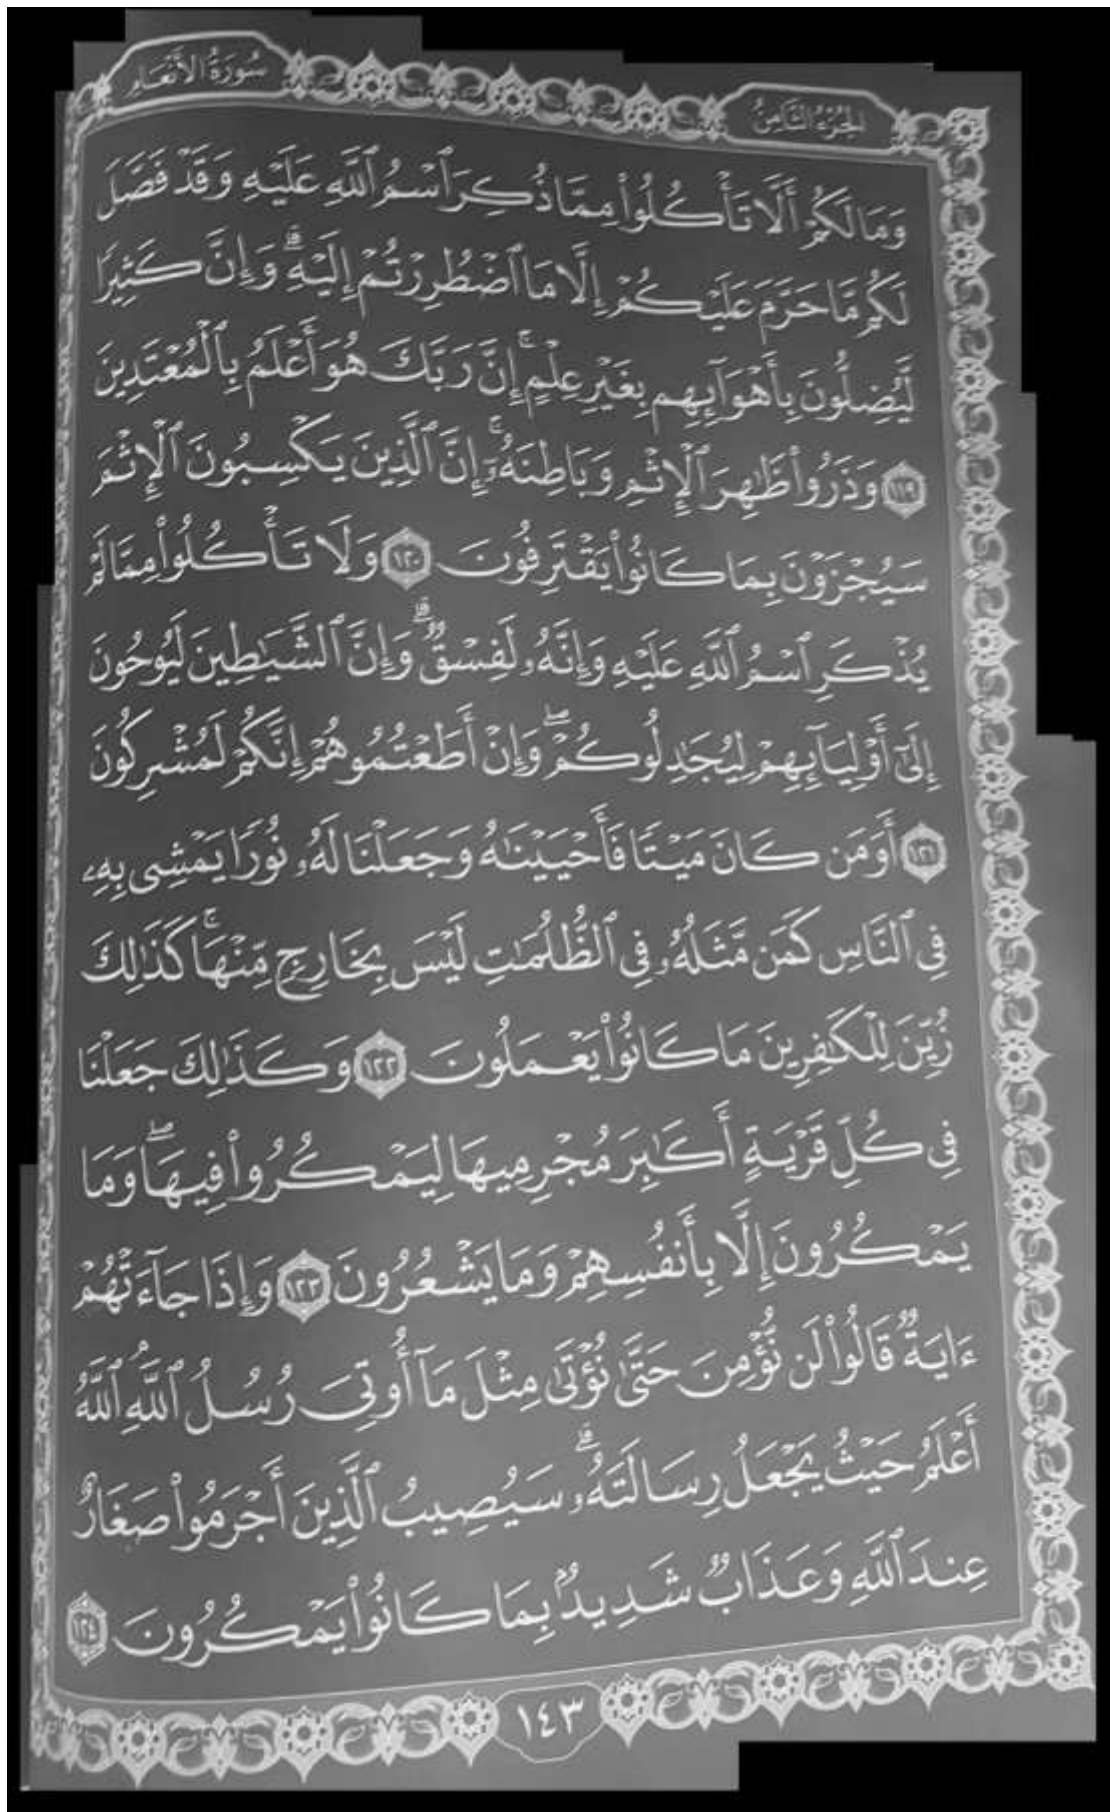 سُورَةُ الأَنْعَامِ
الجُزْءُ الثَّامِنُ
وَمَا لَكُمْ أَلَّا تَأْكُلُوا۟ مِمَّا ذُكِرَ ٱسْمُ ٱللَّهِ عَلَيْهِ وَقَدْ فَصَّلَ
لَكُم مَّا حَرَّمَ عَلَيْكُمْ إِلَّا مَا ٱضْطُرِرْتُمْ إِلَيْهِ ۗ وَإِنَّ كَثِيرًا
لَّيُضِلُّونَ بِأَهْوَآئِهِم بِغَيْرِ عِلْمٍ ۚ إِنَّ رَبَّكَ هُوَ أَعْلَمُ بِٱلْمُعْتَدِينَ
١١٩ وَذَرُوا۟ ظَٰهِرَ ٱلْإِثْمِ وَبَاطِنَهُۥٓ ۚ إِنَّ ٱلَّذِينَ يَكْسِبُونَ ٱلْإِثْمَ
سَيُجْزَوْنَ بِمَا كَانُوا۟ يَقْتَرِفُونَ ١٢٠ وَلَا تَأْكُلُوا۟ مِمَّا لَمْ
يُذْكَرِ ٱسْمُ ٱللَّهِ عَلَيْهِ وَإِنَّهُۥ لَفِسْقٌ ۗ وَإِنَّ ٱلشَّيَٰطِينَ لَيُوحُونَ
إِلَىٰٓ أَوْلِيَآئِهِمْ لِيُجَٰدِلُوكُمْ ۖ وَإِنْ أَطَعْتُمُوهُمْ إِنَّكُمْ لَمُشْرِكُونَ
١٢١ أَوَمَن كَانَ مَيْتًا فَأَحْيَيْنَٰهُ وَجَعَلْنَا لَهُۥ نُورًا يَمْشِى بِهِۦ
فِى ٱلنَّاسِ كَمَن مَّثَلُهُۥ فِى ٱلظُّلُمَٰتِ لَيْسَ بِخَارِجٍ مِّنْهَا ۚ كَذَٰلِكَ
زُيِّنَ لِلْكَٰفِرِينَ مَا كَانُوا۟ يَعْمَلُونَ ١٢٢ وَكَذَٰلِكَ جَعَلْنَا
فِى كُلِّ قَرْيَةٍ أَكَٰبِرَ مُجْرِمِيهَا لِيَمْكُرُوا۟ فِيهَا ۖ وَمَا
يَمْكُرُونَ إِلَّا بِأَنفُسِهِمْ وَمَا يَشْعُرُونَ ١٢٣ وَإِذَا جَآءَتْهُمْ
ءَايَةٌ قَالُوا۟ لَن نُّؤْمِنَ حَتَّىٰ نُؤْتَىٰ مِثْلَ مَآ أُوتِىَ رُسُلُ ٱللَّهِ ۘ ٱللَّهُ
أَعْلَمُ حَيْثُ يَجْعَلُ رِسَالَتَهُۥ ۗ سَيُصِيبُ ٱلَّذِينَ أَجْرَمُوا۟ صَغَارٌ
عِندَ ٱللَّهِ وَعَذَابٌ شَدِيدٌۢ بِمَا كَانُوا۟ يَمْكُرُونَ ١٢٤
١٤٣